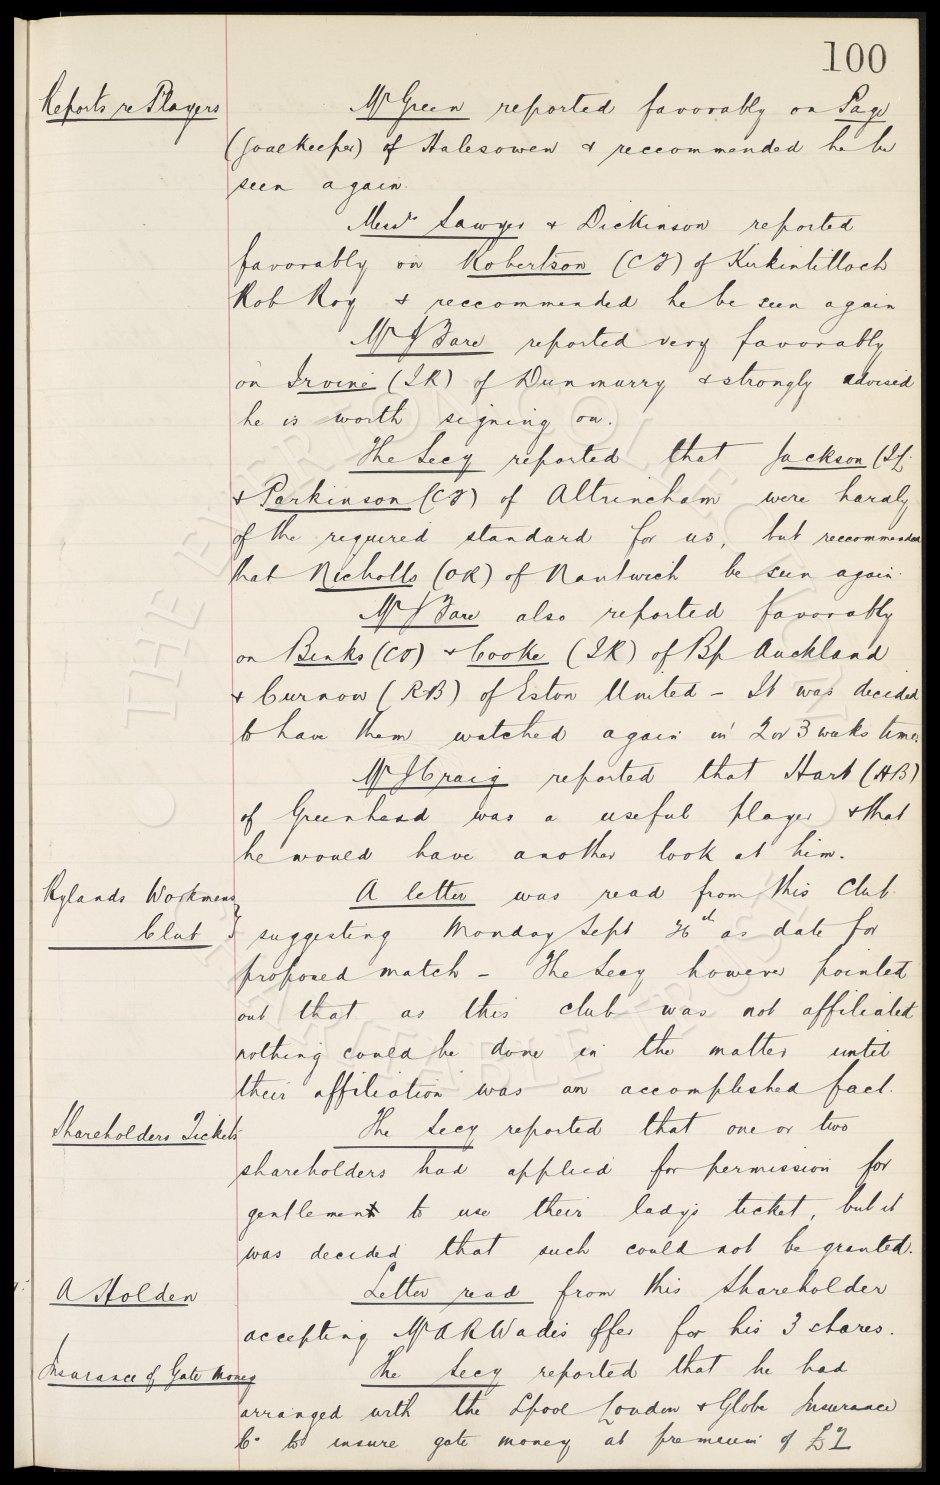 100
Reports re Players
Mr Green reported favorably on Page
(Goalkeeper) of Halesowen & reccommended he be
seen again.
Messrs Sawyer & Dickinson reported
favorably on Robertson (CF) of Kirkintilloch
Rob Roy & reccommended he be seen again
Mr J Bare reported very favorably
on Irvine (IR) of Dunmurry & strongly advised
he is worth signing on.
The Secy reported that Jackson (IL
& Parkinson (CF) of Altrincham were hardly
of the required standard for us, but reccommended
that Nicholls (OR) of Nantwich be seen again.
Mr J Bare also reported favorably
on Binks (CF) & Cooke (IR) of Bp Auckland
& Curnow (RB) of Eston United - It was decided
to have them watched again in 2 or 3 weeks time.
Mr J Craig reported that Hart (HB)
of Greenhead was a useful player & that
he would have another look at him.
Rylands Workmens
Club
A letter was read from this Club
suggesting Monday Sept 26th as date for
proposed match - The Secy however pointed
out that as this club was not affiliated
nothing could be done in the matter until
their affiliation was an accomplished fact.
Shareholders Tickets
The Secy reported that one or two
shareholders had applied for permission for
gentlemen to use their ladys ticket, but it
was decided that such could not be granted.
A Holden
Letter read from this Shareholder
accepting Mr A R Wades offer for his 3 shares.
Insurance of Gate Money
The Secy reported that he had
arranged with the Lpool London & Globe Insurance
Co to insure gate money at premium of £2
THE EVERTON COLLECTION
CHARITABLE TRUST